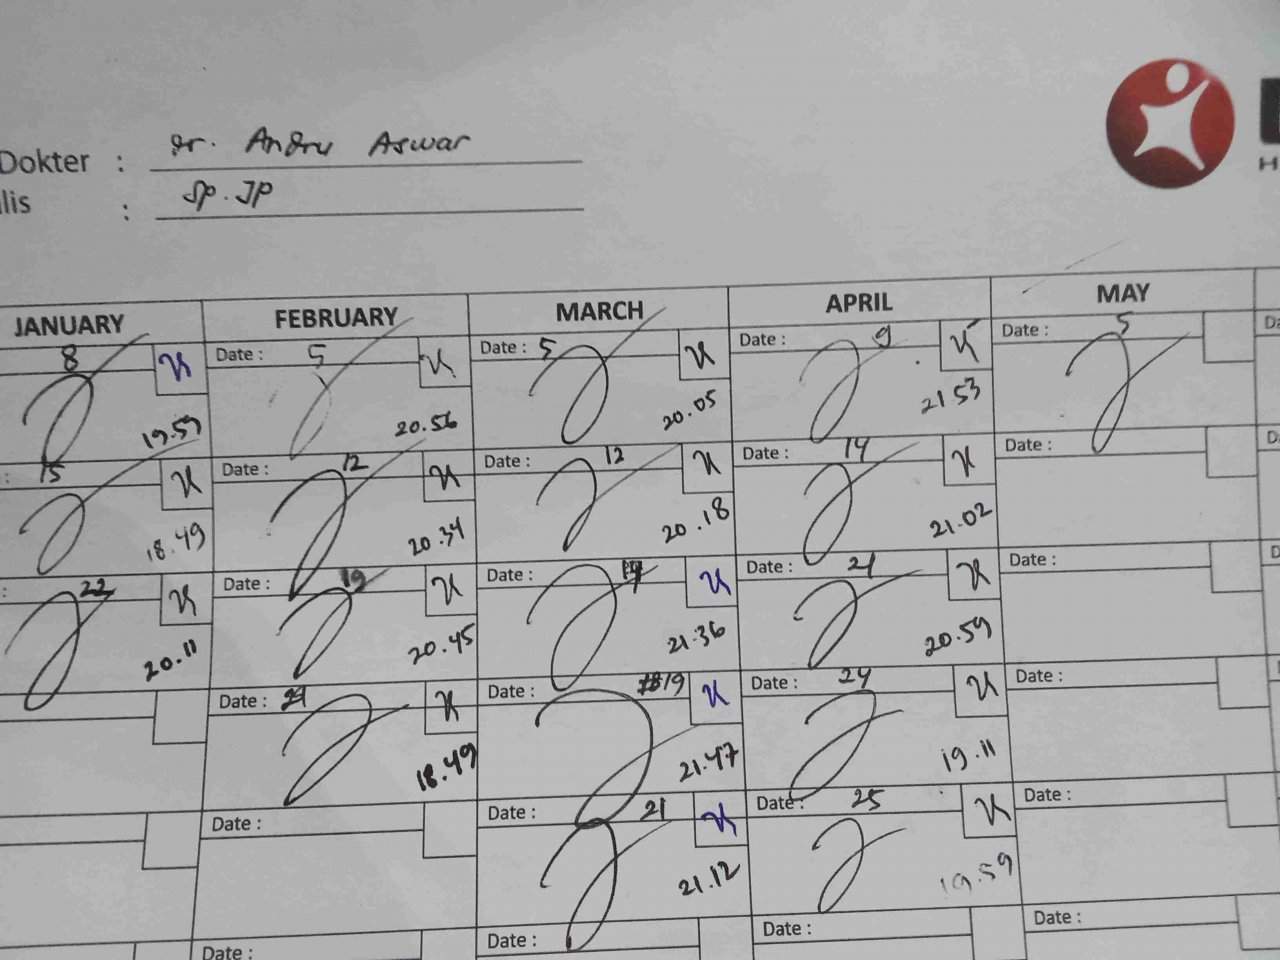 Dokter : dr. Andru Aswar
lis : Sp.JP
H
JANUARY FEBRUARY MARCH APRIL MAY
8 Date : 5 Date : 5 Date : 9 Date : 5 Da
19.59 20.56 20.05 21 53
: 15 Date : 12 Date : 12 Date : 14 Date : D
18.49 20.34 20.18 21.02
: 22 Date : 19 Date : Date : 21 Date : D
20.11 20.45 21.36 20.59
Date : Date : 19 Date : 24 Date :
18.49 21.47 19.11
Date : Date : 21 Date : 25 Date :
21.12 19.59
Date : Date : Date : Date :